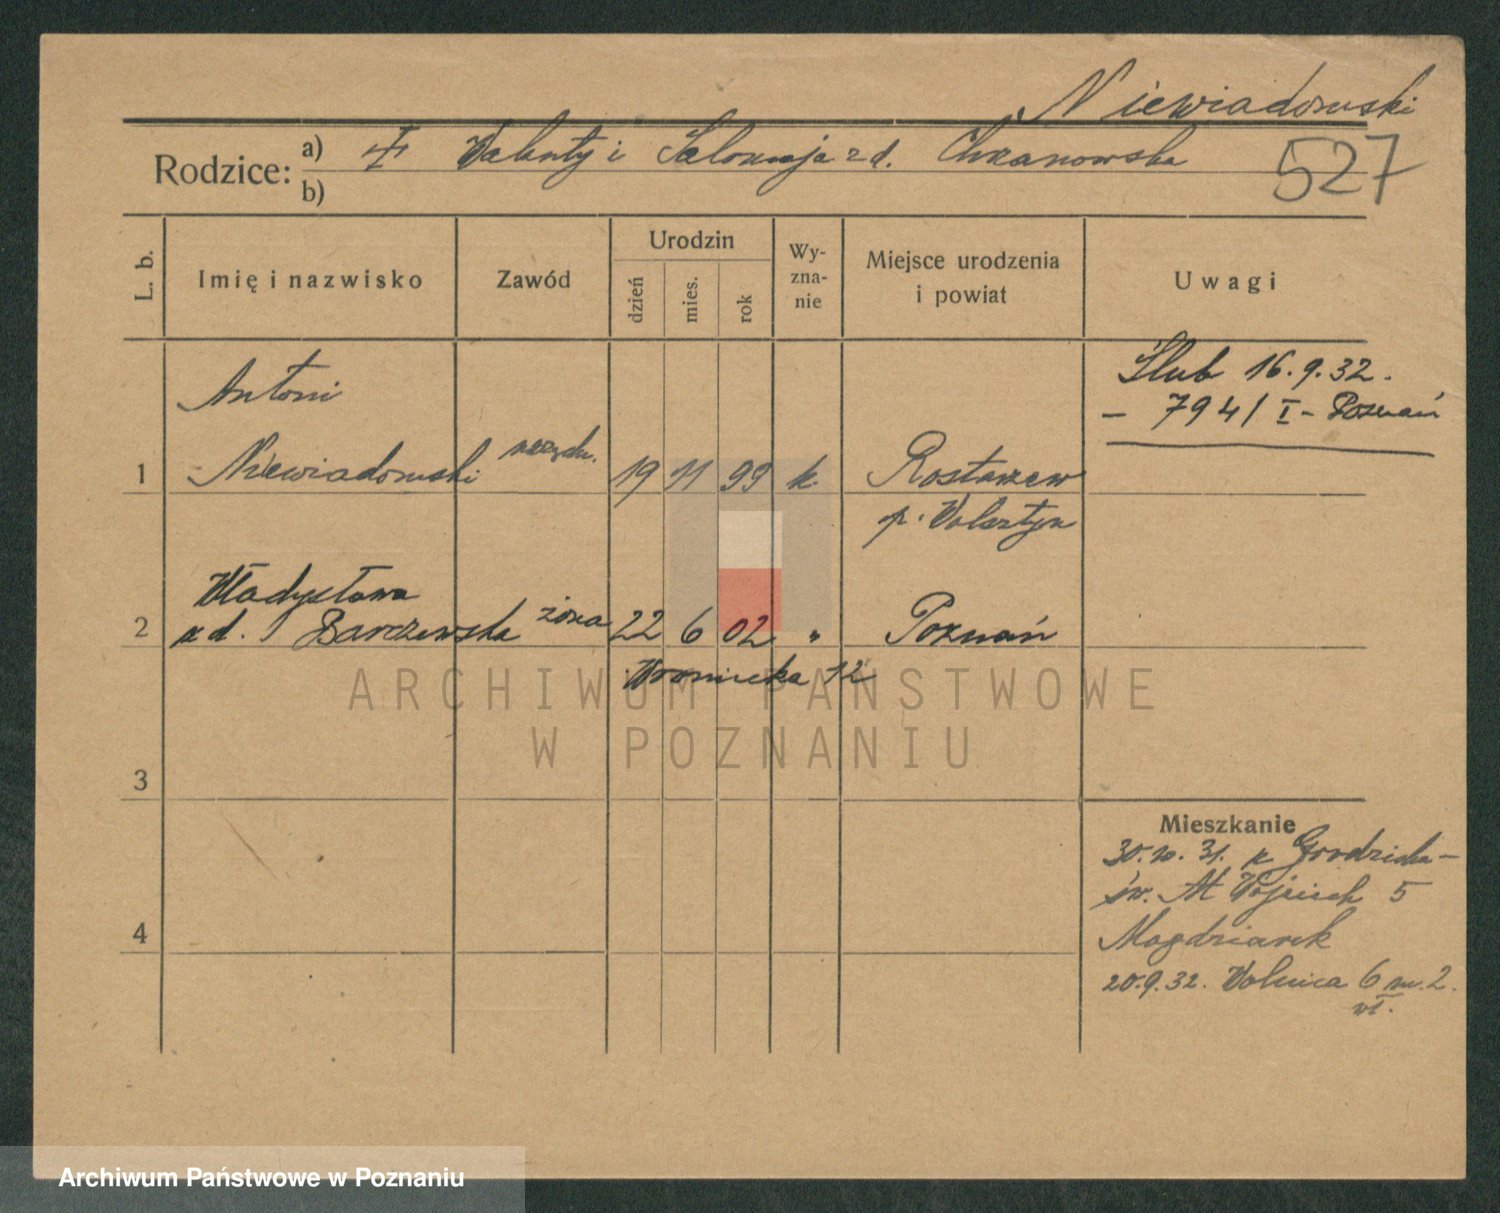 Niewiadomski
527
Rodzice: a) Walenty i Salomeja z d. Chrzanowska
b)
L. b.
Imię i nazwisko
Zawód
Urodzin
dzień
mies.
rok
Wy-
zna-
nie
Miejsce urodzenia
i powiat
Uwagi
Ślub 16.9.32.
- 794/I - Poznań
Antoni
1 Niewiadomski 19 11 99 k. Rostarzew
p. Wolsztyn
Władysława
2 z d. Barczewska żona 22 6 02 " Poznań
Wroniecka 12
ARCHIWUM PAŃSTWOWE
W POZNANIU
3
Mieszkanie
30.10.31. z Grodziska -
św. Wojciech 5
4
Magdziarek
20.9.32. Wolnica 6 m. 2.
wł.
Archiwum Państwowe w Poznaniu